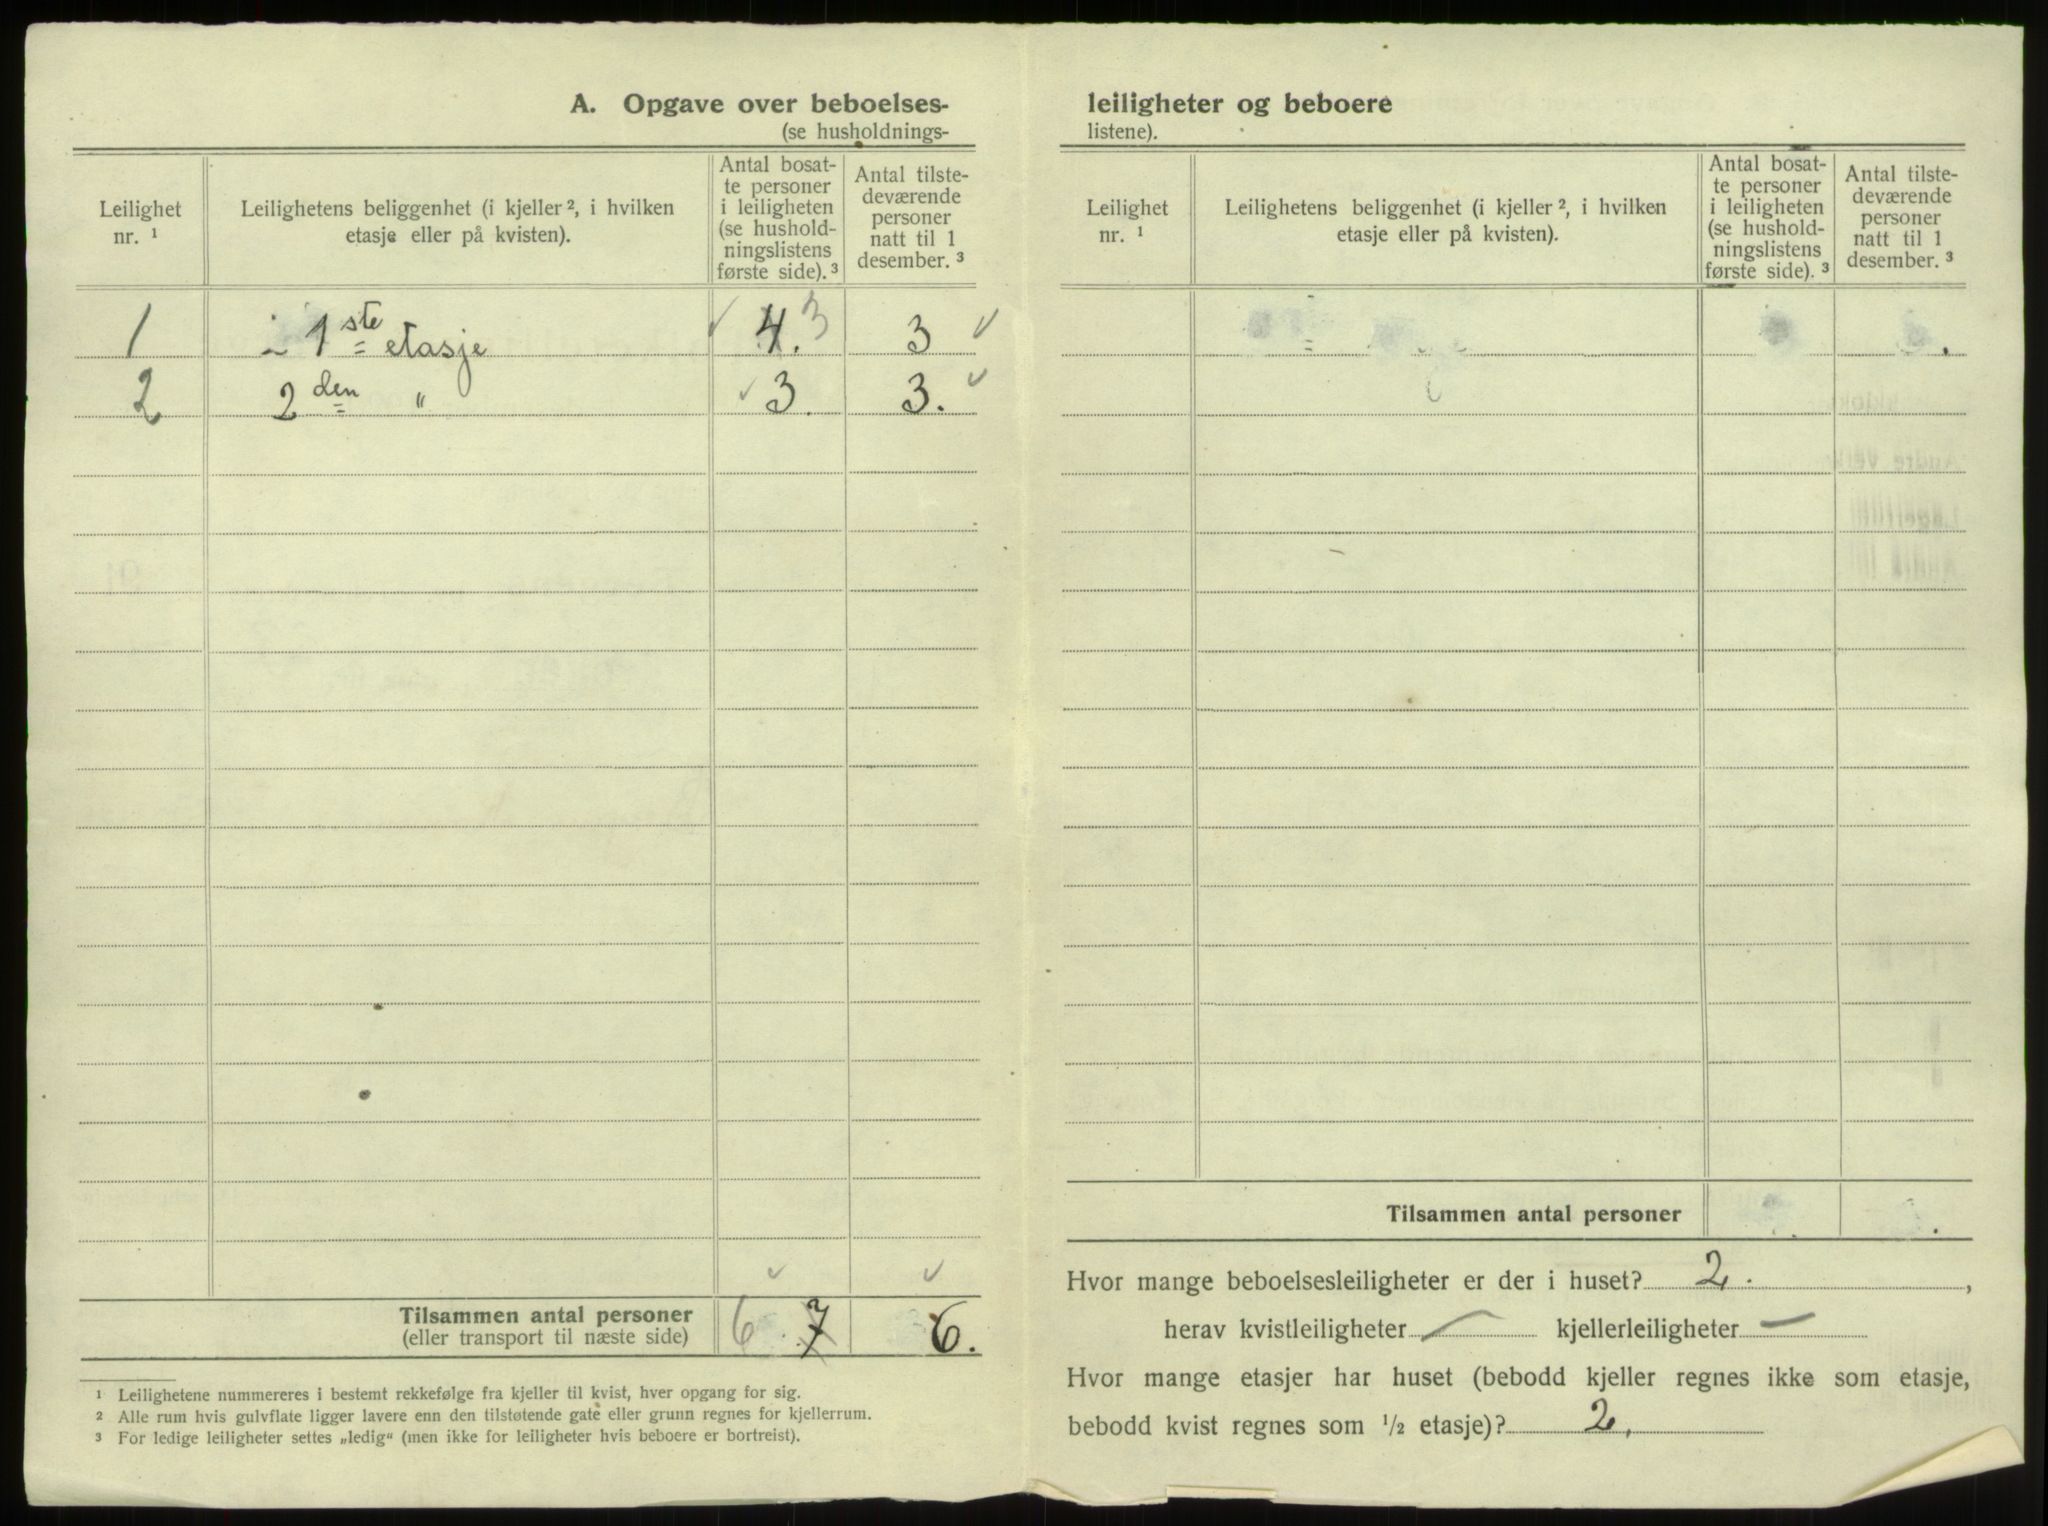 A. Opgave over beboelses-
(se husholdnings-
Leilighet nr. ¹
Leilighetens beliggenhet (i kjeller ², i hvilken etasje eller på kvisten).
Antal bosat-
te personer
i leiligheten
(se hushold-
ningslistens
første side). ³
Antal tilste-
deværende
personer
natt til 1
desember. ³
1 i 1ste etasje ✓ 4. 3 3 ✓
2 2den " ✓ 3. 3. ✓
✓ ✓
Tilsammen antal personer 6 7 6.
(eller transport til næste side)
¹ Leilighetene nummereres i bestemt rekkefølge fra kjeller til kvist, hver opgang for sig.
² Alle rum hvis gulvflate ligger lavere enn den tilstøtende gate eller grunn regnes for kjellerrum.
³ For ledige leiligheter settes „ledig“ (men ikke for leiligheter hvis beboere er bortreist).
leiligheter og beboere
listene).
Leilighet nr. ¹
Leilighetens beliggenhet (i kjeller ², i hvilken etasje eller på kvisten).
Antal bosat-
te personer
i leiligheten
(se hushold-
ningslistens
første side). ³
Antal tilste-
deværende
personer
natt til 1
desember. ³
Tilsammen antal personer
Hvor mange beboelsesleiligheter er der i huset? 2. ,
herav kvistleiligheter — kjellerleiligheter —
Hvor mange etasjer har huset (bebodd kjeller regnes ikke som etasje,
bebodd kvist regnes som 1/2 etasje)? 2.